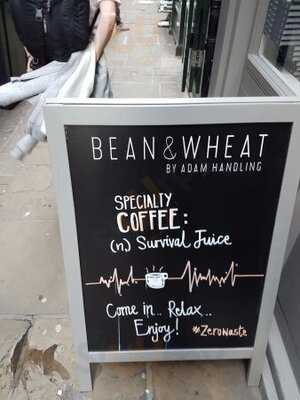 BEAN & WHEAT
BY ADAM HANDLING
SPECIALTY
COFFEE:
(n) Survival Juice
Come in... Relax...
Enjoy! #Zerowaste